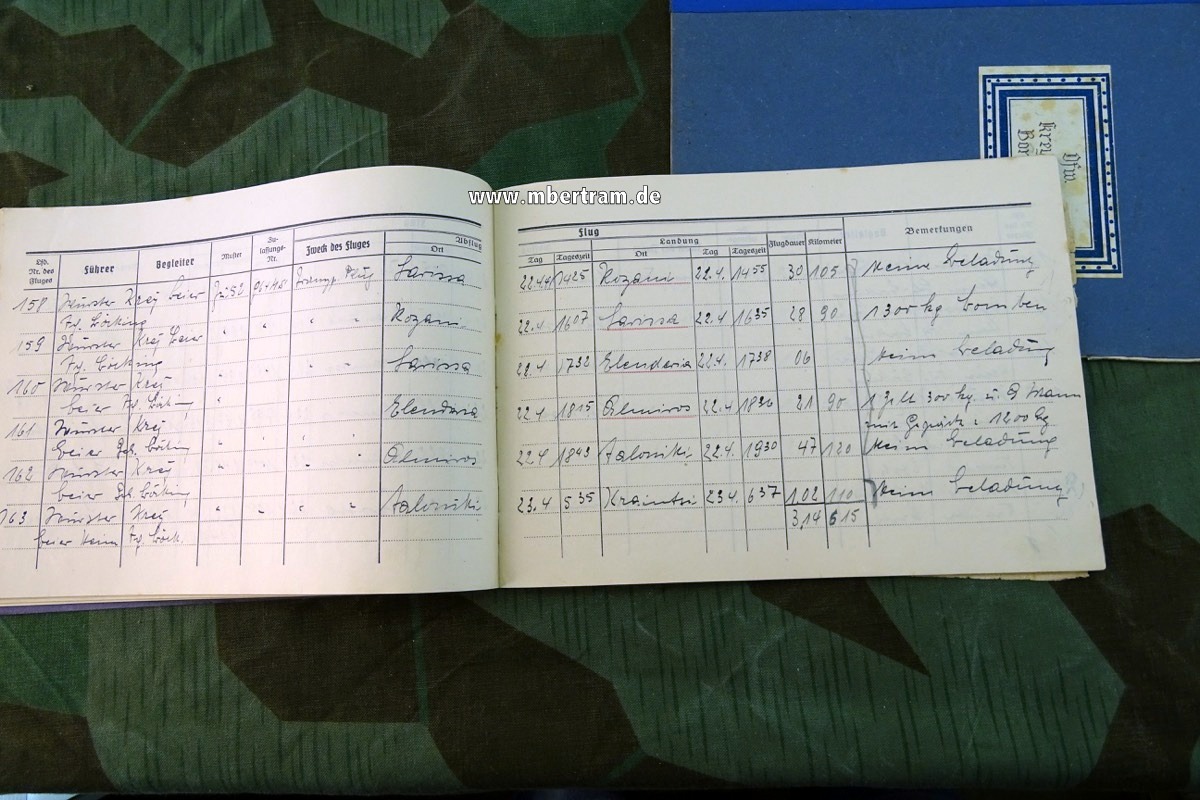 www.mbertram.de
Ofw.
Krej
Bor
Lfd. Nr. des Fluges Führer Begleiter Muster Zulassungs-Nr. Zweck des Fluges Abflug Ort
Flug
Tag Tageszeit Landung Ort Tag Tageszeit Flugdauer Kilometer Bemerkungen
158 Wurster Krej beier Ju 52 Larissa 22.4. 1425 Kozani 22.4. 1455 30 105 Keine Beladung
159 Wurster Krej Kozani 22.4 1607 Larissa 22.4 1635 28 90 1300 kg Bomben
160 Wurster Krej Larissa 22.4 1732 22.4. 1738 06 Keine Beladung
beier
161 Wurster Krej 22.4 1815 Almiros 22.4 1836 21 90 300 kg. u. 9 Mann
beier mit Gepäck = 1200 kg
162 Wurster Krej Almiros 22.4 1843 Saloniki 22.4. 1930 47 120 Keine Beladung
beier
163 Wurster Krej Saloniki 23.4 535 23.4. 637 102 110 Keine Beladung
beier 3,14 615